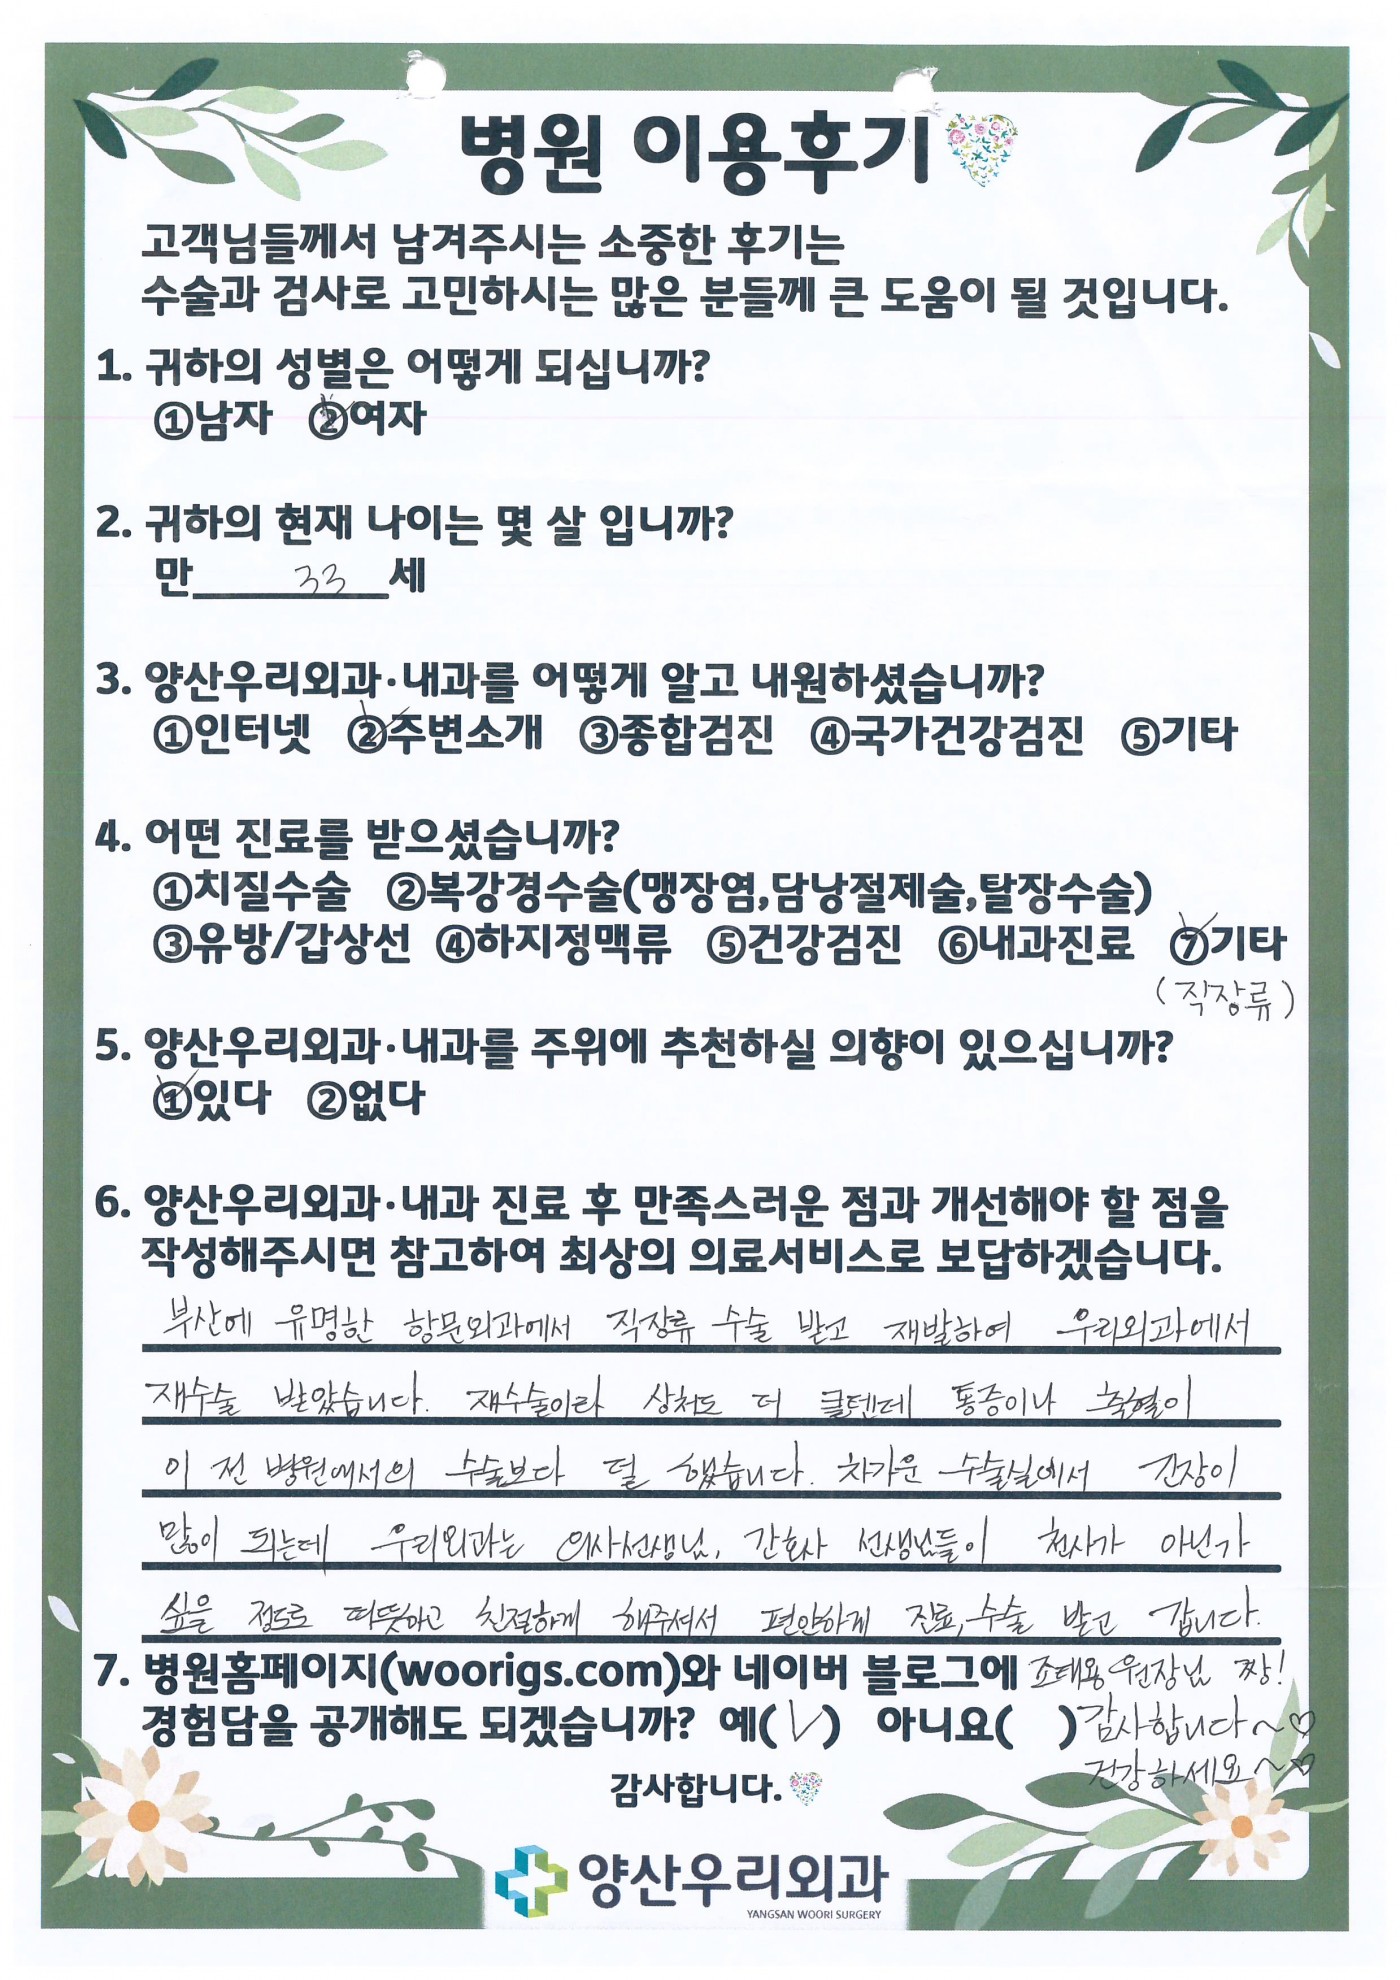 병원 이용후기
고객님들께서 남겨주시는 소중한 후기는
수술과 검사로 고민하시는 많은 분들께 큰 도움이 될 것입니다.
1. 귀하의 성별은 어떻게 되십니까?
①남자 ②여자
2. 귀하의 현재 나이는 몇 살 입니까?
만 33 세
3. 양산우리외과·내과를 어떻게 알고 내원하셨습니까?
①인터넷 ②주변소개 ③종합검진 ④국가건강검진 ⑤기타
4. 어떤 진료를 받으셨습니까?
①치질수술 ②복강경수술(맹장염,담낭절제술,탈장수술)
③유방/갑상선 ④하지정맥류 ⑤건강검진 ⑥내과진료 ⑦기타
(직장류)
5. 양산우리외과·내과를 주위에 추천하실 의향이 있으십니까?
①있다 ②없다
6. 양산우리외과·내과 진료 후 만족스러운 점과 개선해야 할 점을
작성해주시면 참고하여 최상의 의료서비스로 보답하겠습니다.
부산에 유명한 항문외과에서 직장류 수술 받고 재발하여 우리외과에서
재수술 받았습니다. 재수술이라 상처도 더 클텐데 통증이나 출혈이
이 전 병원에서의 수술보다 덜 했습니다. 차가운 수술실에서 긴장이
많이 되는데 우리외과는 의사선생님, 간호사 선생님들이 천사가 아닌가
싶을 정도로 따뜻하고 친절하게 해주셔서 편안하게 진료, 수술 받고 갑니다.
7. 병원홈페이지(woorigs.com)와 네이버 블로그에 조태용 원장님 짱!
경험담을 공개해도 되겠습니까? 예(✓) 아니요( ) 감사합니다~♡
건강하세요~♡
감사합니다.
양산우리외과
YANGSAN WOORI SURGERY